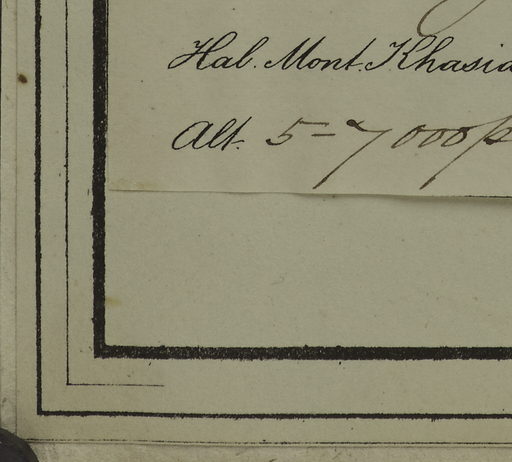 Hab. Mont. Khasia
Alt. 5-7000 p